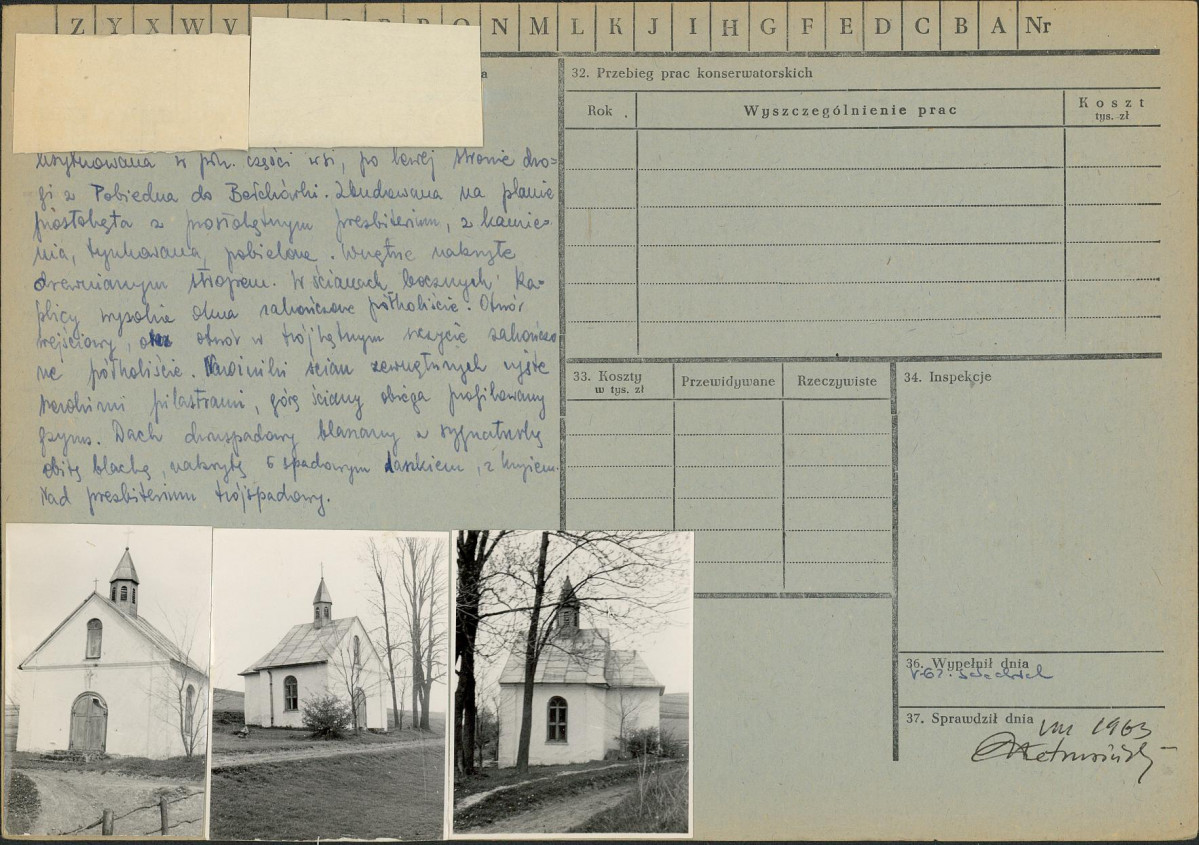 Z Y X W V N M L K J I H G F E D C B A Nr
usytuowana w płn. części wsi, po lewej stronie dro=
gi z Pobiedna do Bełchówki. Zbudowana na planie
prostokąta z prostokątnym presbiterium, z kamie=
nia, tynkowana, pobielona. Wnętrze nakryte
drewnianym stropem. W ścianach bocznych ka=
plicy wysokie okna zakończone półkoliście. Otwór
wejściowy, otwór w trójkątnym szczycie zakończo
ne półkoliście. Narożniki ścian zewnętrznych
szerokimi pilastrami, górę ściany obiega profilowany
gzyms. Dach dwuspadowy blaszany z sygnaturką
obitą blachą, nakrytą 6 spadowym daszkiem, z
Nad presbiterium trójspadowy.
32. Przebieg prac konserwatorskich
Rok
Wyszczególnienie prac
Koszt
tys. zł
33. Koszty
w tys. zł
Przewidywane
Rzeczywiste
34. Inspekcje
36. Wypełnił dnia
37. Sprawdził dnia
VIII 1963